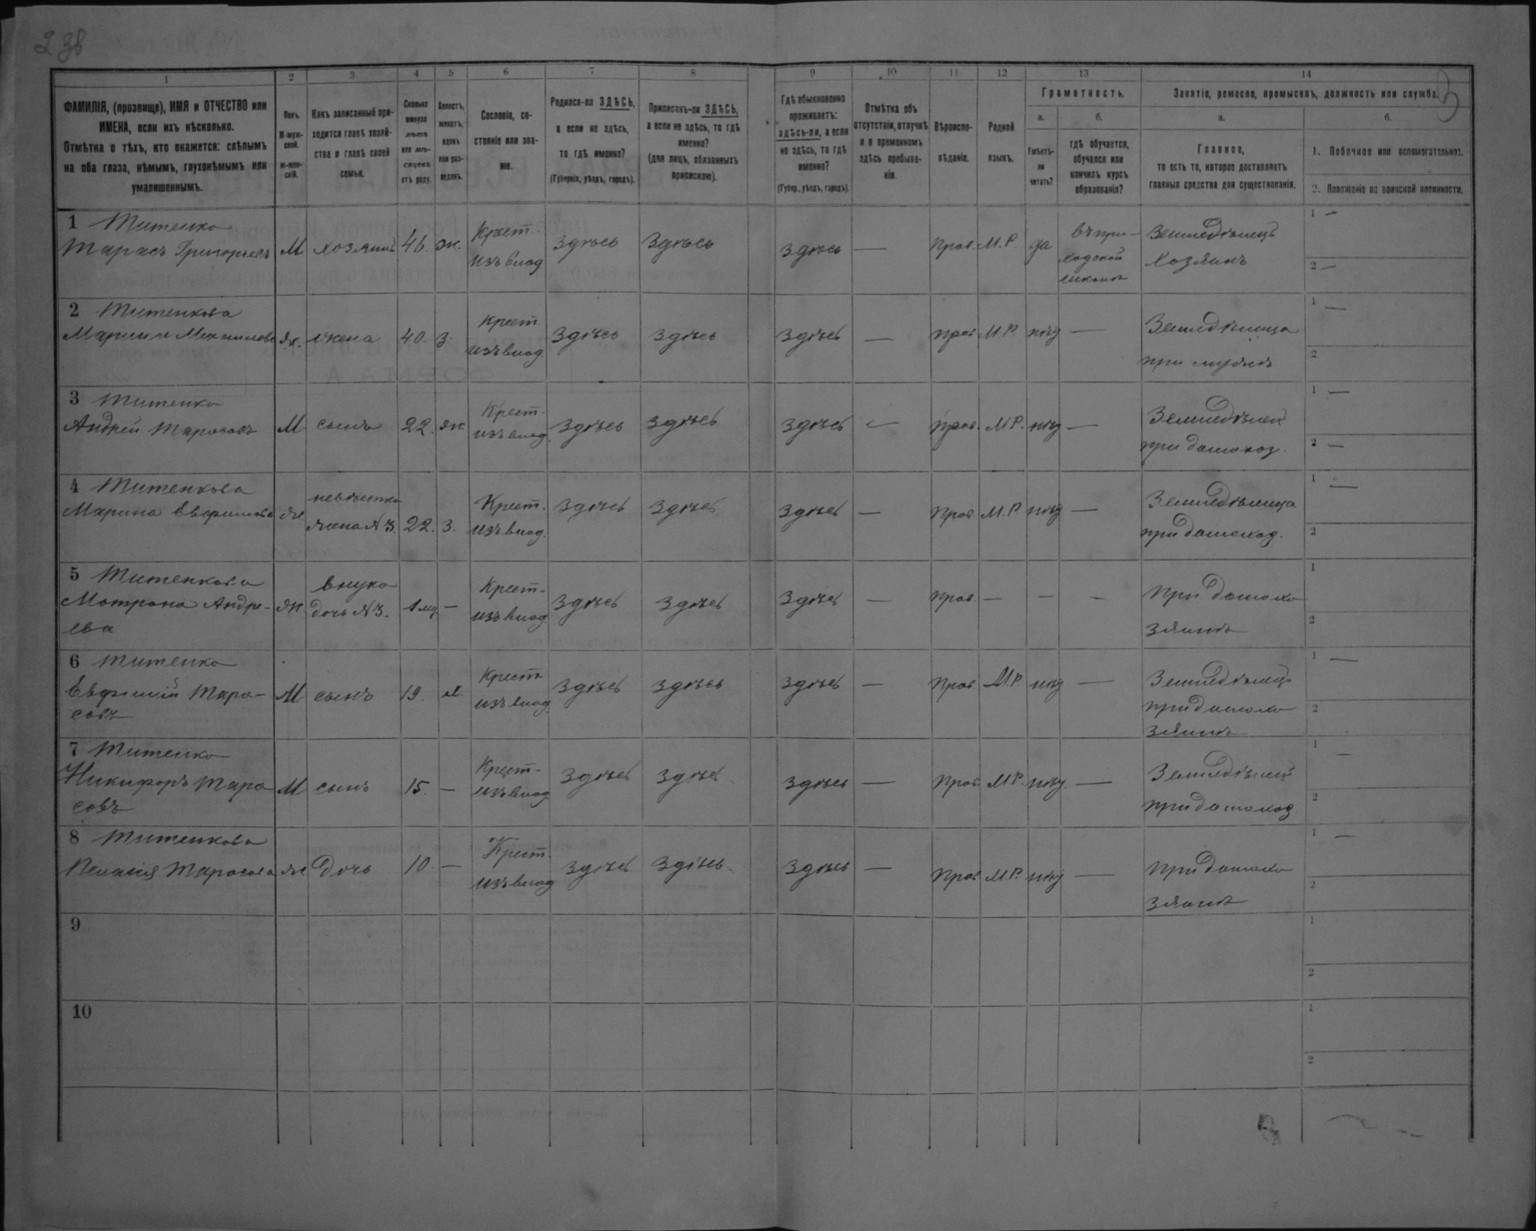 238
3
1 2 3 4 5 6 7 8 9 10 11 12 13 14
ФАМИЛІЯ, (прозвище), ИМЯ и ОТЧЕСТВО или
ИМЕНА, если ихъ нѣсколько.
Отмѣтка о тѣхъ, кто окажется: слѣпымъ
на оба глаза, нѣмымъ, глухонѣмымъ или
умалишеннымъ.
Полъ.
М-муж-
ской.
ж-жен-
скій.
Какъ записанный при-
ходится главѣ хозяй-
ства и главѣ своей
семьи.
Сколько
минуло
лѣтъ
или мѣ-
сяцевъ
отъ роду.
Холостъ,
женатъ,
вдовъ
или раз-
веденъ.
Сословіе, со-
стояніе или зва-
ніе.
Родился-ли ЗДѢСЬ,
а если не здѣсь,
то гдѣ именно?
(Губернія, уѣздъ, городъ).
Приписанъ-ли ЗДѢСЬ,
а если не здѣсь, то гдѣ
именно?
(для лицъ, обязанныхъ
припискою).
Гдѣ обыкновенно
проживаетъ:
здѣсь-ли, а если
не здѣсь, то гдѣ
именно?
(Губер., уѣздъ, городъ).
Отмѣтка объ
отсутствіи, отлучкѣ
и о временномъ
здѣсь пребыва-
ніи.
Вѣроиспо-
вѣданіе.
Родной
языкъ.
Грамотность.
а.
Умѣетъ-
ли
читать?
б.
гдѣ обучается,
обучался или
кончилъ курсъ
образованія?
Занятіе, ремесло, промыселъ, должность или служба.
а.
Главное,
то есть то, которое доставляетъ
главныя средства для существованія.
б.
1. Побочное или вспомогательное.
2. Положеніе по воинской повинности.
1 Титенко
Тарасъ Григорьевъ М хозяинъ 46. ж. Крест. изъ влад. здѣсь здѣсь здѣсь — прав. М.Р. да въ при-
ходской
школѣ
Земледѣлецъ
Хозяинъ
1 —
2 —
2 Титенкова
ж. жена 40. з. Крест. изъ влад. здѣсь здѣсь здѣсь — прав. М.Р. нѣт —
Земледѣлица
при мужѣ
1 —
2
3 Титенко
Андрей Тарасовъ М сынъ 22. ж Крест. изъ влад. здѣсь здѣсь здѣсь — прав. М.Р. нѣт —
Земледѣлец
при домохоз.
1 —
2 —
4 Титенкова
Марина ж невѣстка
жена N 3. 22. з. Крест. изъ влад. здѣсь здѣсь здѣсь — прав. М.Р. нѣт —
Земледѣлица
при домохоз.
1 —
2
5 Титенкова
Матрона Андре-
ева ж. внука
дочь N 3. — Крест. изъ влад. здѣсь здѣсь здѣсь — прав. — — —
При домохо
зяинѣ
1
2
6 Титенко
Евфимій Тара-
совъ М сынъ 19. Крест. изъ влад. здѣсь здѣсь здѣсь — прав. М.Р. нѣт —
Земледѣлец
при домохо
зяинѣ
1 —
2
7 Титенко
Никифоръ Тара
совъ М сынъ 15. — Крест. изъ влад. здѣсь здѣсь здѣсь — прав. М.Р. нѣт —
Земледѣлец
при домохоз.
1 —
2
8 Титенкова
Тарасова ж дочь 10 — Крест. изъ влад. здѣсь здѣсь здѣсь — прав. М.Р. нѣт —
При домохо
зяинѣ
1 —
2
9
1
2
10
1
2